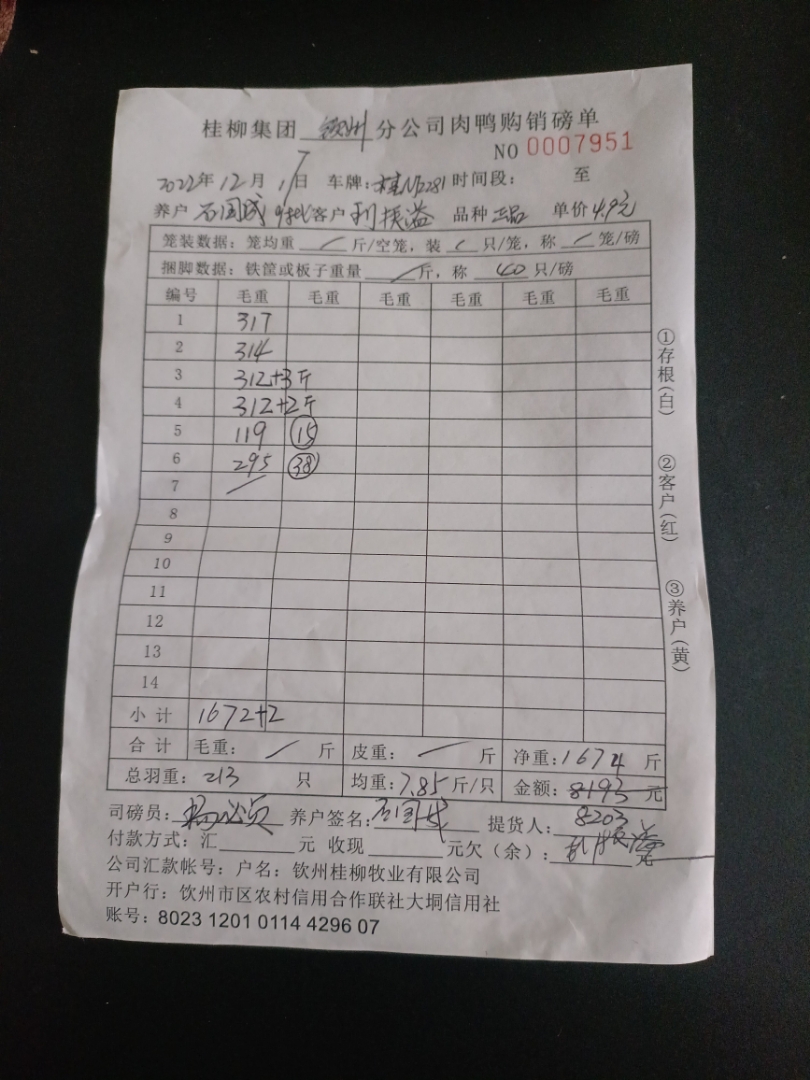 桂柳集团 钦州 分公司肉鸭购销磅单
NO 0007951
2022年12月1日 车牌: 281 时间段: 至
养户 石国成 9批客户 利振溢 品种 正品 单价 4.9元
笼装数据: 笼均重 / 斤/空笼, 装 / 只/笼, 称 / 笼/磅
捆脚数据: 铁筐或板子重量 / 斤, 称 40 只/磅
编号 毛重 毛重 毛重 毛重 毛重 毛重
1 317
2 314
3 312+3斤
4 312+2斤
5 119 15
6 295 38
7 /
8
9
10
11
12
13
14
小计 1672+2
合计 毛重: / 斤 皮重: / 斤 净重: 1674 斤
总羽重: 213 只 均重: 7.85 斤/只 金额: 8193 元
8203
司磅员: 养户签名: 石国成 提货人: 利振溢
付款方式: 汇 元 收现 元欠(余): 元
公司汇款帐号: 户名: 钦州桂柳牧业有限公司
开户行: 钦州市区农村信用合作联社大垌信用社
账号: 8023 1201 0114 4296 07
①存根(白)
②客户(红)
③养户(黄)